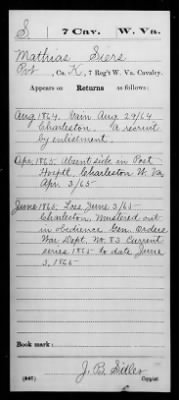 S | 7 Cav. | W. Va.
Mathias Siers
Pvt, Co. K, 7 Reg't W. Va. Cavalry.
Appears on
Returns as follows:
Aug 1864. Gain Aug 29/64
Charleston. A recruit
by enlistment.
Apr. 1865. Absent sick in Post
Hosptl. Charleston W. Va
Apr. 3/65
June 1865. Loss June 3/65
Charleston. Mustered out
in obedience Gen. Orders
War Dept. No. 83 Current
series 1865 to date June
3, 1865
Book mark:
J. B. Sitler
Copyist.